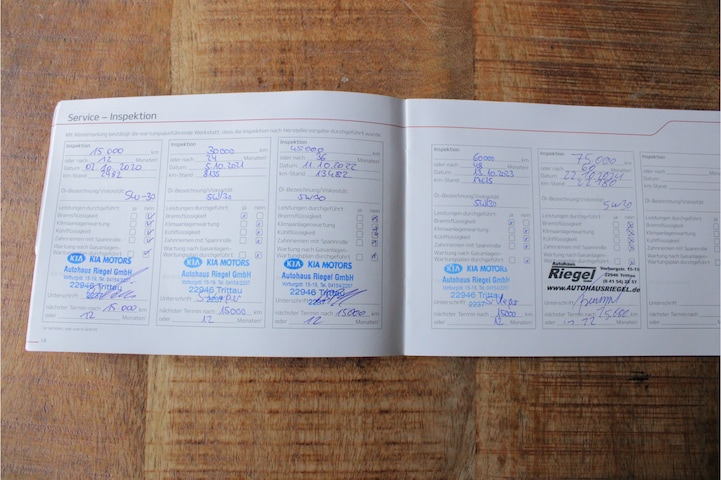 Service – Inspektion
Mit Abstempelung bestätigt die wartungsausführende Werkstatt, dass die Inspektion nach Herstellervorgabe durchgeführt wurde.
Inspektion
15.000 km
oder nach 12 Monaten
Datum 2020
km-Stand
Öl-Bezeichnung/Viskosität
5W-30
Leistungen durchgeführt: ja nein
Bremsflüssigkeit
Klimaanlagenwartung
Kühlflüssigkeit
Zahnriemen mit Spannrolle
Wartung nach Gasanlagen-
Wartungsplan durchgeführt
KIA KIA MOTORS
Autohaus Riegel GmbH
22946 Trittau
Unterschrift
nächster Termin nach 15 000 km
oder 12 Monaten
14
Inspektion
30000 km
oder nach 24 Monaten
Datum 5.10.2021
km-Stand 8135
Öl-Bezeichnung/Viskosität
5W30
Leistungen durchgeführt: ja nein
Bremsflüssigkeit
Klimaanlagenwartung
Kühlflüssigkeit
Zahnriemen mit Spannrolle
Wartung nach Gasanlagen-
Wartungsplan durchgeführt
KIA KIA MOTORS
Autohaus Riegel GmbH
22946 Trittau
Unterschrift
nächster Termin nach 15000 km
oder 12 Monaten
Inspektion
45000 km
oder nach 36 Monaten
Datum 11.10.2022
km-Stand 13482
Öl-Bezeichnung/Viskosität
5W30
Leistungen durchgeführt: ja nein
Bremsflüssigkeit
Klimaanlagenwartung
Kühlflüssigkeit
Zahnriemen mit Spannrolle
Wartung nach Gasanlagen-
Wartungsplan durchgeführt
KIA KIA MOTORS
Autohaus Riegel GmbH
22946 Trittau
Unterschrift
nächster Termin nach 15000 km
oder 12 Monaten
Inspektion
60000 km
oder nach 48 Monaten
Datum 13.10.2023
km-Stand
Öl-Bezeichnung/Viskosität
5W30
Leistungen durchgeführt: ja nein
Bremsflüssigkeit
Klimaanlagenwartung
Kühlflüssigkeit
Zahnriemen mit Spannrolle
Wartung nach Gasanlagen-
Wartungsplan durchgeführt
KIA KIA MOTORS
Autohaus Riegel GmbH
22946 Trittau
Unterschrift
nächster Termin nach 15000 km
oder 12 Monaten
Inspektion
75.000 km
oder nach 60 Monaten
Datum 22.10.2024
km-Stand 22 180
Öl-Bezeichnung/Viskosität
5W30
Leistungen durchgeführt: ja nein
Bremsflüssigkeit
Klimaanlagenwartung
Kühlflüssigkeit
Zahnriemen mit Spannrolle
Wartung nach Gasanlagen-
Wartungsplan durchgeführt
Autohaus
Riegel
Vorburgstr. 15-19
22946 Trittau
www.AUTOHAUSRIEGEL.de
Unterschrift
nächster Termin nach 15.000 km
oder 12 Monaten
Inspektion
oder nach
Datum
km-Stand
Öl-Bezeichnung
Leistungen
Bremsflüssigkeit
Klimaanlagenwartung
Kühlflüssigkeit
Zahnriemen mit
Wartung nach
Wartungsplan
Unterschrift
nächster Termin
oder